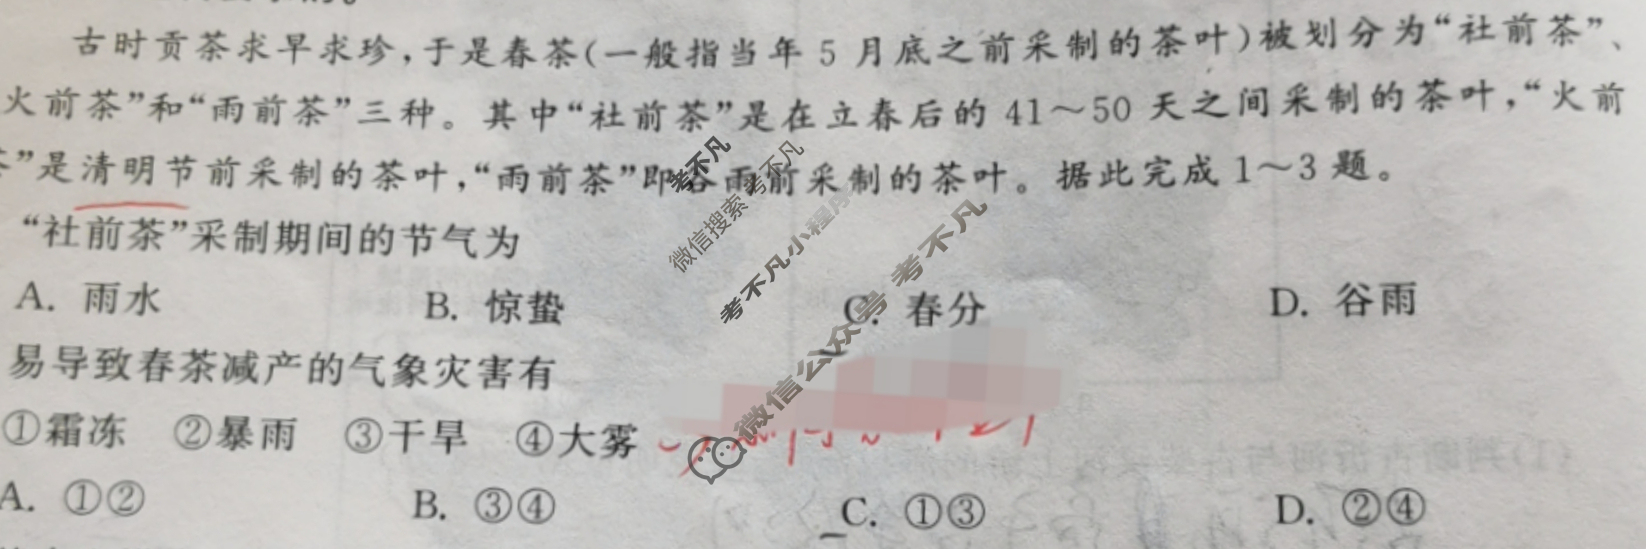 古时贡茶求早求珍,于是春茶(一般指当年5月底之前采制的茶叶)被划分为“社前茶”、
火前茶”和“雨前茶”三种。其中“社前茶”是在立春后的41～50天之间采制的茶叶,“火前
茶”是清明节前采制的茶叶,“雨前茶”即谷雨前采制的茶叶。据此完成1～3题。
“社前茶”采制期间的节气为
A. 雨水 B. 惊蛰 C. 春分 D. 谷雨
易导致春茶减产的气象灾害有
①霜冻 ②暴雨 ③干旱 ④大雾
A. ①② B. ③④ C. ①③ D. ②④
考不凡
微信搜索 考不凡
考不凡小程序
微信公众号 考不凡